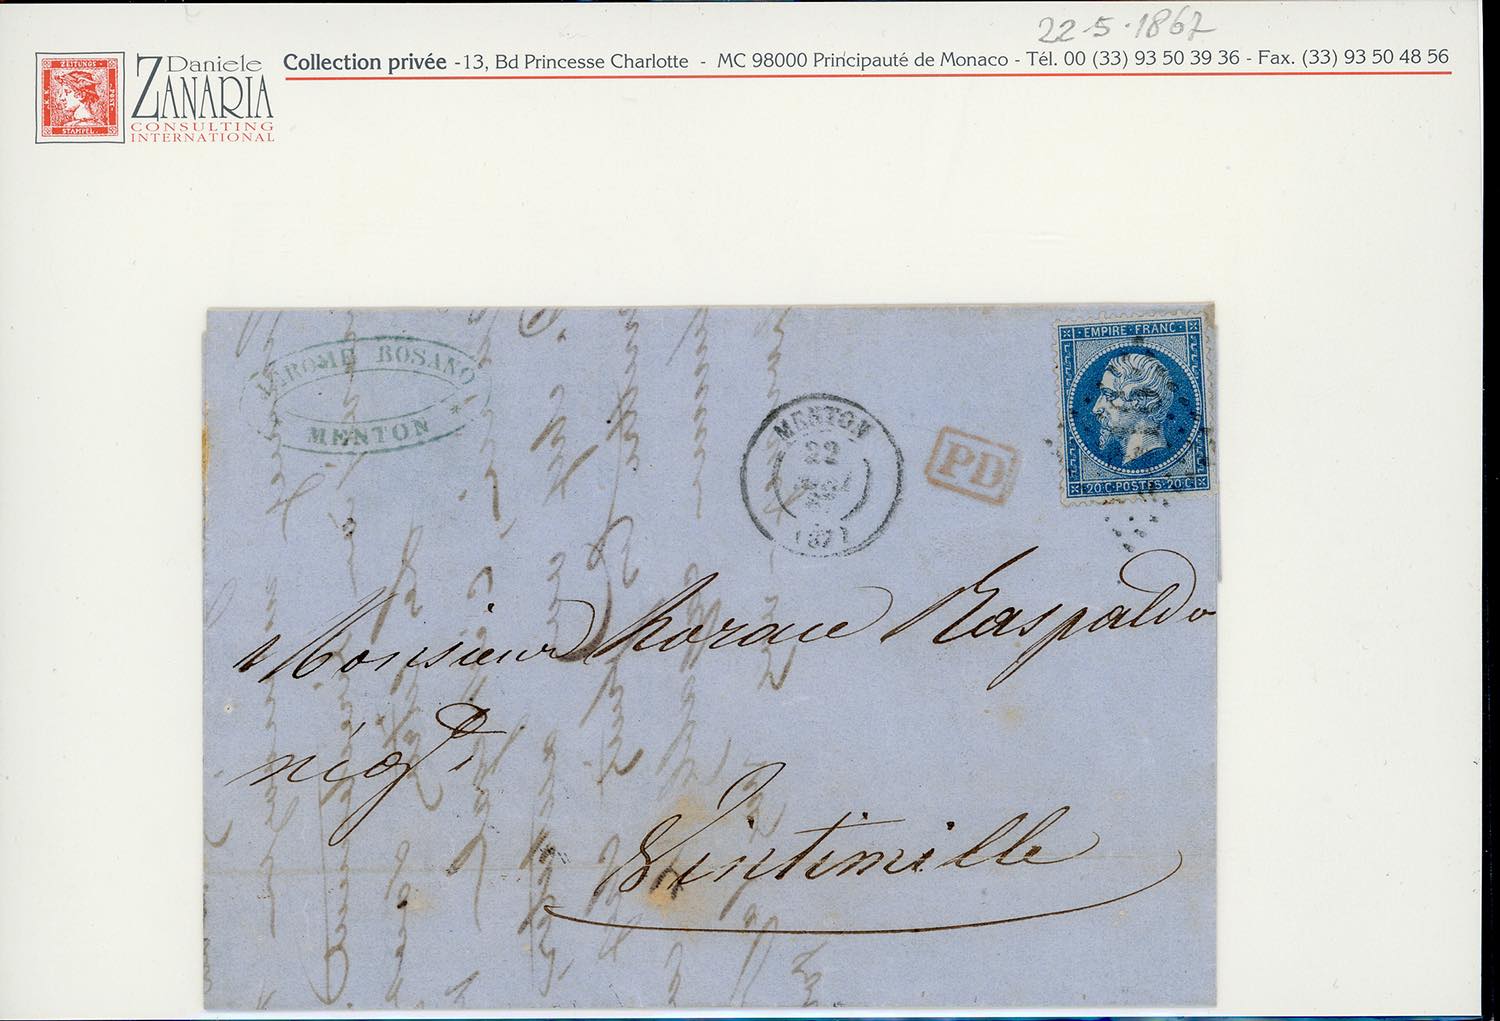 22-5-1867
Daniele
ZANARIA
CONSULTING
INTERNATIONAL
ZEITUNGS
K.K.
POST
STAMPEL
Collection privée -13, Bd Princesse Charlotte - MC 98000 Principauté de Monaco - Tél. 00 (33) 93 50 39 36 - Fax. (33) 93 50 48 56
JEROME BOSANO
MENTON
MENTON
22
(87)
PD
EMPIRE FRANC
20 C POSTES 20 C
Monsieur horace Raspaldo
négt
Vintimille